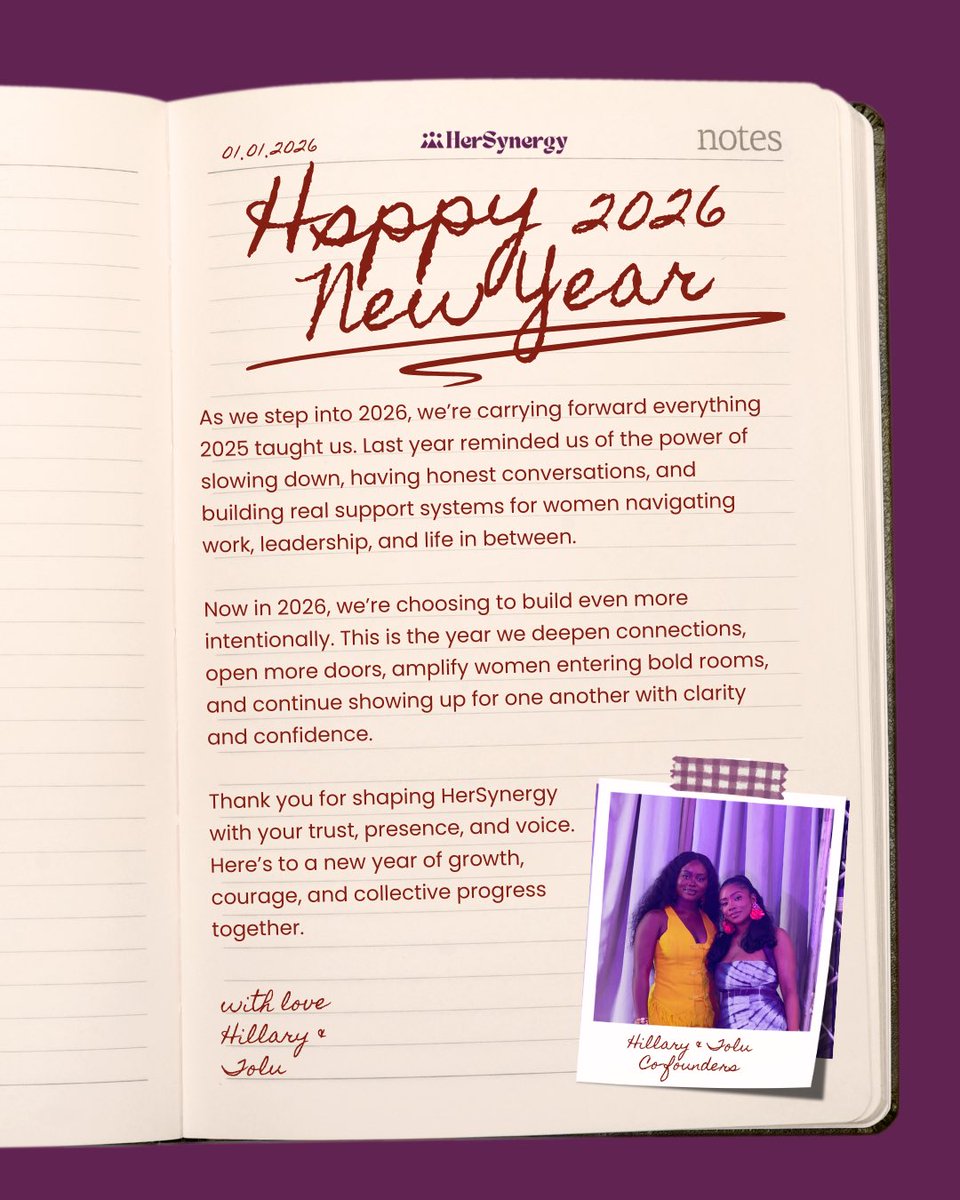 01.01.2026
HerSynergy
notes
Happy 2026
New Year
As we step into 2026, we're carrying forward everything
2025 taught us. Last year reminded us of the power of
slowing down, having honest conversations, and
building real support systems for women navigating
work, leadership, and life in between.
Now in 2026, we're choosing to build even more
intentionally. This is the year we deepen connections,
open more doors, amplify women entering bold rooms,
and continue showing up for one another with clarity
and confidence.
Thank you for shaping HerSynergy
with your trust, presence, and voice.
Here's to a new year of growth,
courage, and collective progress
together.
with love
Hillary &
Tolu
Hillary & Tolu
Co-founders